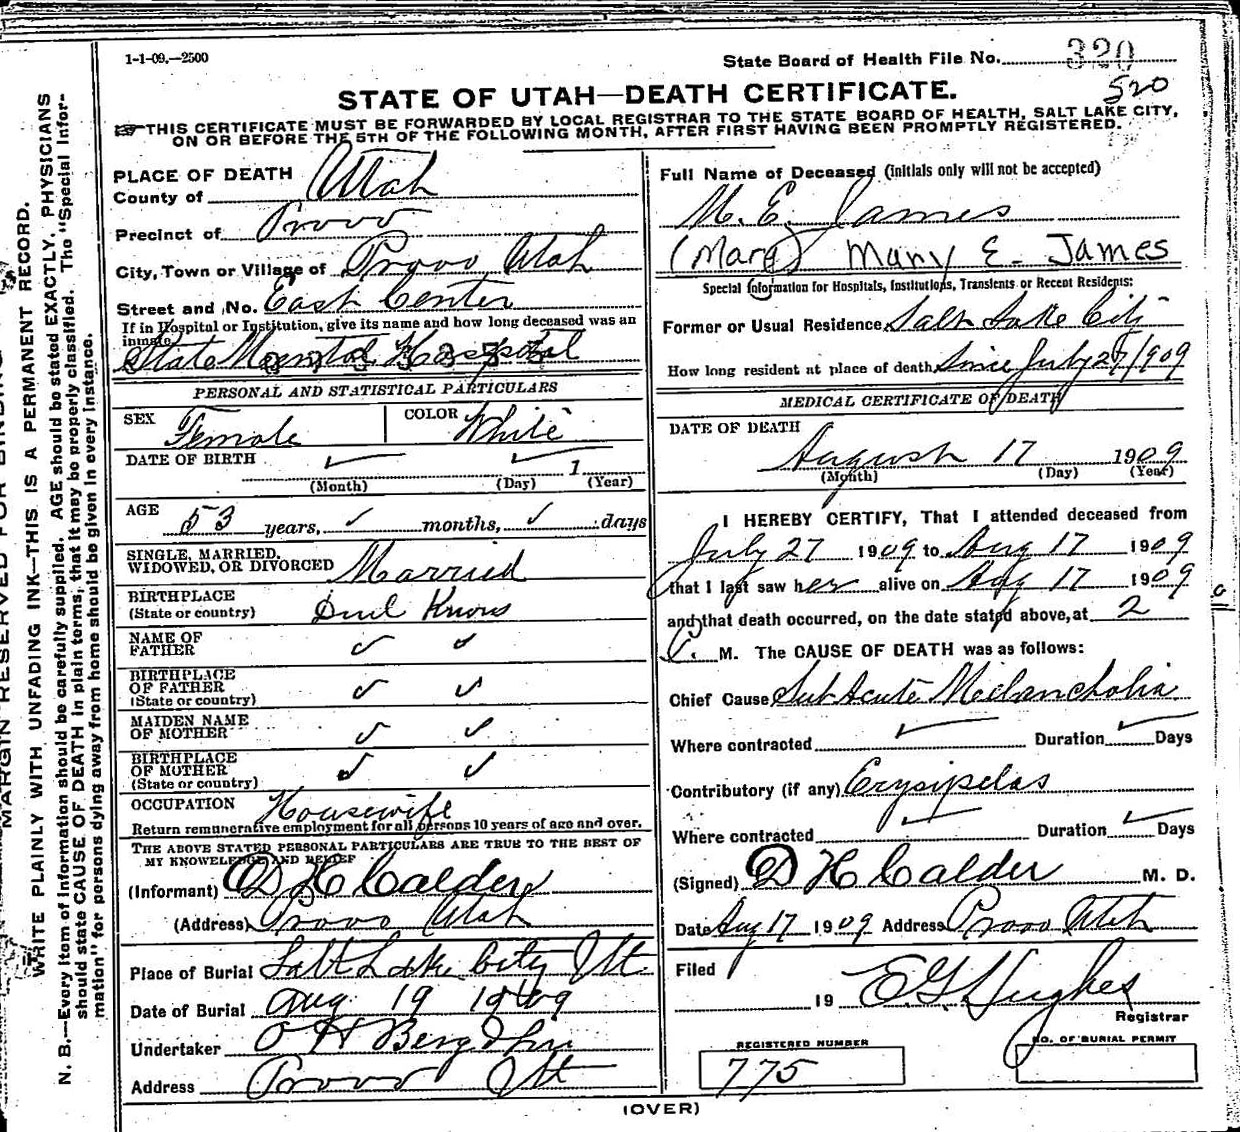 1-1-09.—2500
State Board of Health File No. 320
520
STATE OF UTAH—DEATH CERTIFICATE.
THIS CERTIFICATE MUST BE FORWARDED BY LOCAL REGISTRAR TO THE STATE BOARD OF HEALTH, SALT LAKE CITY,
ON OR BEFORE THE 5TH OF THE FOLLOWING MONTH, AFTER FIRST HAVING BEEN PROMPTLY REGISTERED.
MARGIN RESERVED FOR BINDING
WRITE PLAINLY WITH UNFADING INK—THIS IS A PERMANENT RECORD.
N. B.—Every item of information should be carefully supplied. AGE should be stated EXACTLY. PHYSICIANS
should state CAUSE OF DEATH in plain terms, that it may be properly classified. The "Special Infor-
mation" for persons dying away from home should be given in every instance.
PLACE OF DEATH
County of Utah
Precinct of Provo
City, Town or Village of Provo, Utah
Street and No. East Center
If in Hospital or Institution, give its name and how long deceased was an
inmate.
State Mental Hospital
PERSONAL AND STATISTICAL PARTICULARS
SEX Female COLOR White
DATE OF BIRTH ✓ ✓ 1
(Month) (Day) (Year)
AGE 53 years, ✓ months, ✓ days
SINGLE, MARRIED,
WIDOWED, OR DIVORCED Married
BIRTHPLACE
(State or country) Dont Know
NAME OF
FATHER ✓ ✓
BIRTHPLACE
OF FATHER ✓ ✓
(State or country)
MAIDEN NAME
OF MOTHER ✓ ✓
BIRTHPLACE
OF MOTHER ✓ ✓
(State or country)
OCCUPATION Housewife
Return remunerative employment for all persons 10 years of age and over.
THE ABOVE STATED PERSONAL PARTICULARS ARE TRUE TO THE BEST OF
MY KNOWLEDGE AND BELIEF
(Informant) D H Calder
(Address) Provo Utah
Place of Burial Salt Lake City Ut
Date of Burial Aug. 19 1909
Undertaker O H Berg
Address Provo Ut
Full Name of Deceased (initials only will not be accepted)
M. E. James
(Mary) Mary E. James
Special Information for Hospitals, Institutions, Transients or Recent Residents:
Former or Usual Residence Salt Lake City
How long resident at place of death, Since July 27/1909
MEDICAL CERTIFICATE OF DEATH
DATE OF DEATH
August 17 1909
(Month) (Day) (Year)
I HEREBY CERTIFY, That I attended deceased from
July 27 1909 to Aug 17 1909
that I last saw her alive on Aug 17 1909
and that death occurred, on the date stated above, at 2
M. The CAUSE OF DEATH was as follows:
Chief Cause Sub Acute Melancholia
Where contracted ✓ Duration ✓ Days
Contributory (if any) Erysipelas
Where contracted ✓ Duration ✓ Days
(Signed) D H Calder M. D.
Date Aug 17 1909 Address Provo Utah
Filed
19 E G Hughes
Registrar
REGISTERED NUMBER
775
NO. OF BURIAL PERMIT
(OVER)